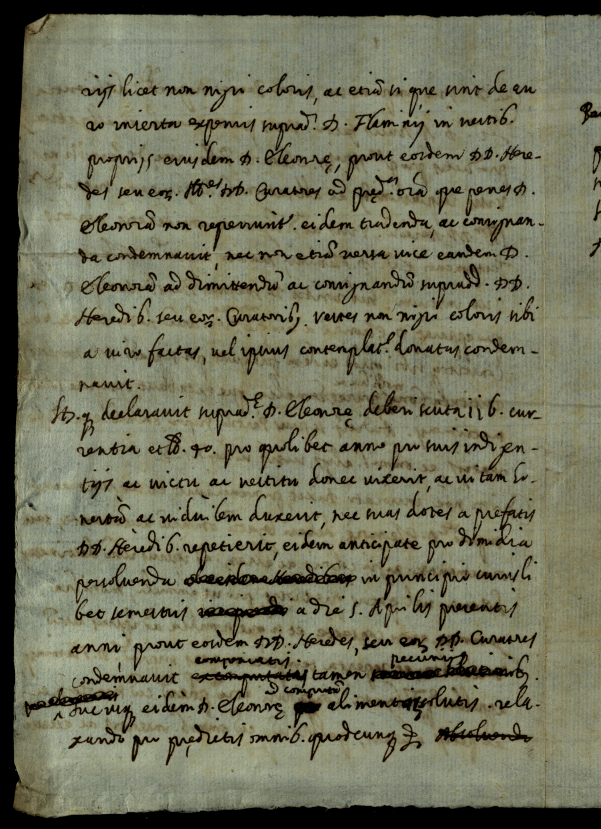 rijs licet non nigri coloris, ac etiā si quę sint de au
ro inserta expensis suprad.ⁱ D. Flaminij in vestib.
proprijs eiusdem D. Eleonorę, prout eosdem DD. Here-
des seu eoȝ. DD. Curatores ad pręd. que penes D.
Eleonorā non reperiunt. eidem tradenda, ac consignan-
da condemnavit, nec non etiā versa vice eandem D.
Eleonorā ad dimittendū ac consignandū supradd. DD.
Heredib. seu eoȝ. Curatorib, vestes non nigri coloris sibi
a viro factas, vel ipsius contemplat.ᵉ donatas condem-
navit.
It. q declaravit suprad.ᵉ D. Eleonorę deberi scuta 116. cur-
rentia et 40. pro quolibet anno pro suis indigen-
tijs ac victu ac vestitu donec vixerit, ac vitam ho-
nestā ac viduilem duxerit, nec suas dotes a prefatis
DD. Heredib. repetierit, eidem anticipate pro dimidia
persolvenda in principio cuiusli
bet semestris a die 5. Aprilis presentis
anni prout eosdem DD. Heredes, seu eoȝ DD. Curatores
condemnavit compensatis tamen pecunijs
eidem D. Eleonorę ad computū alimentoȝ solutis. rela-
xando pro prędictis omnib. quodcunq